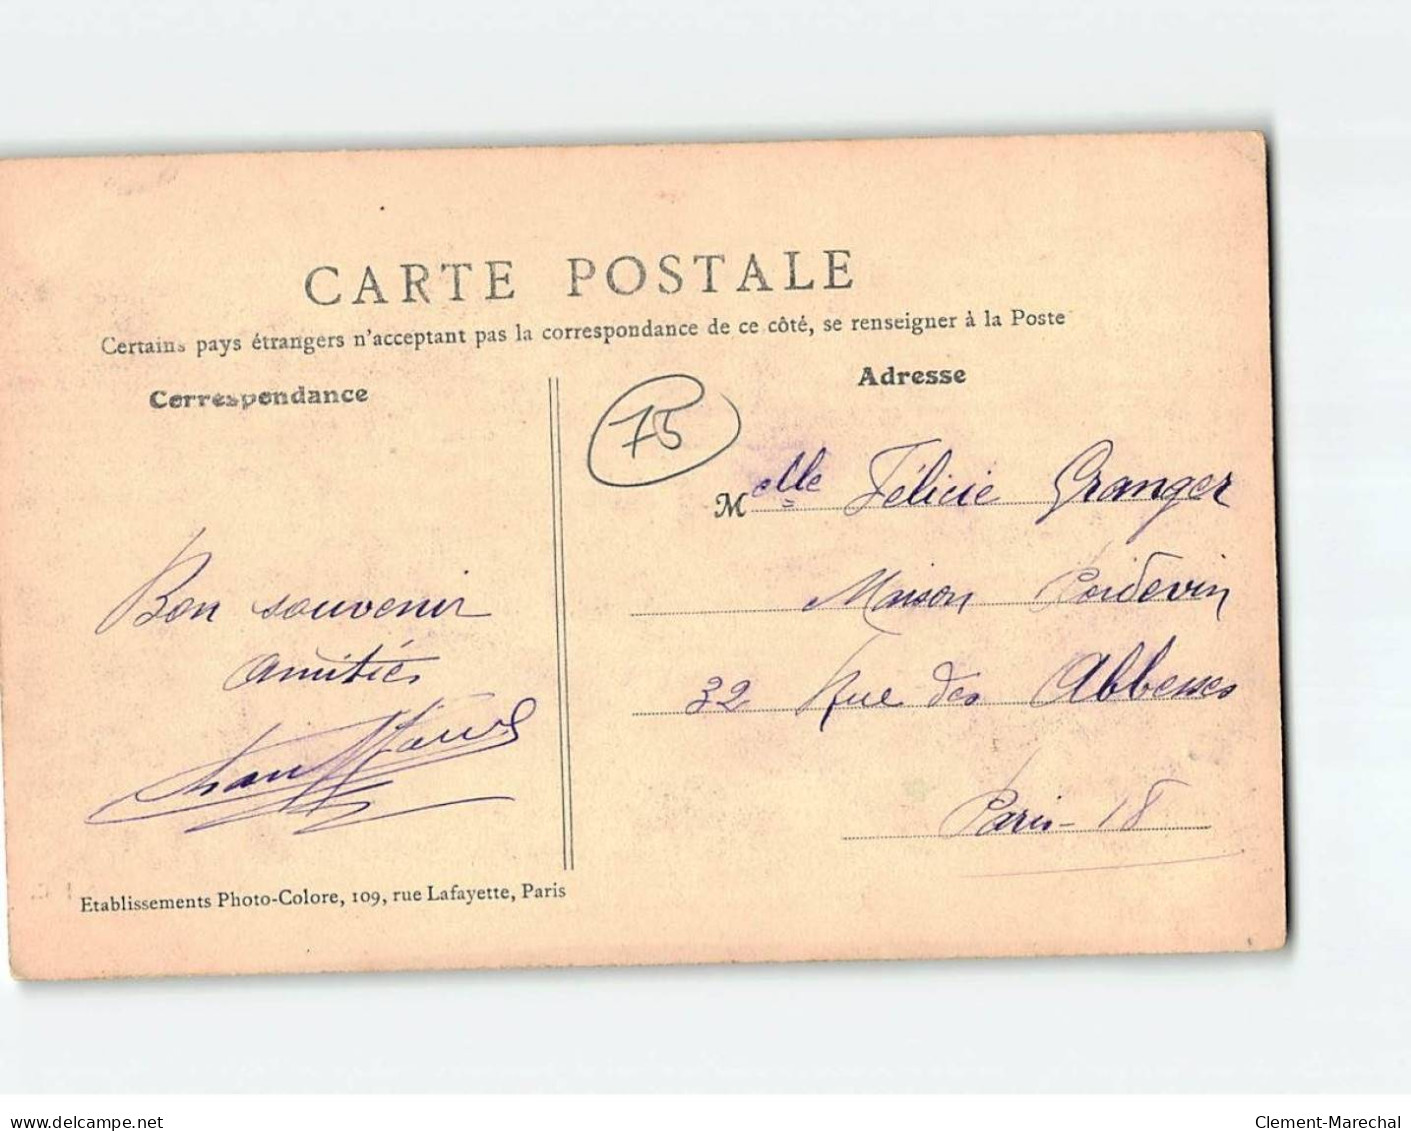 CARTE POSTALE
Certains pays étrangers n'acceptant pas la correspondance de ce côté, se renseigner à la Poste
Correspondance
Adresse
75
Melle Félicie Granger
Maison Poidevin
32 Rue des Abbesses
Paris - 18
Bon souvenir
amitiés
Etablissements Photo-Colore, 109, rue Lafayette, Paris
www.delcampe.net
Clement-Marechal